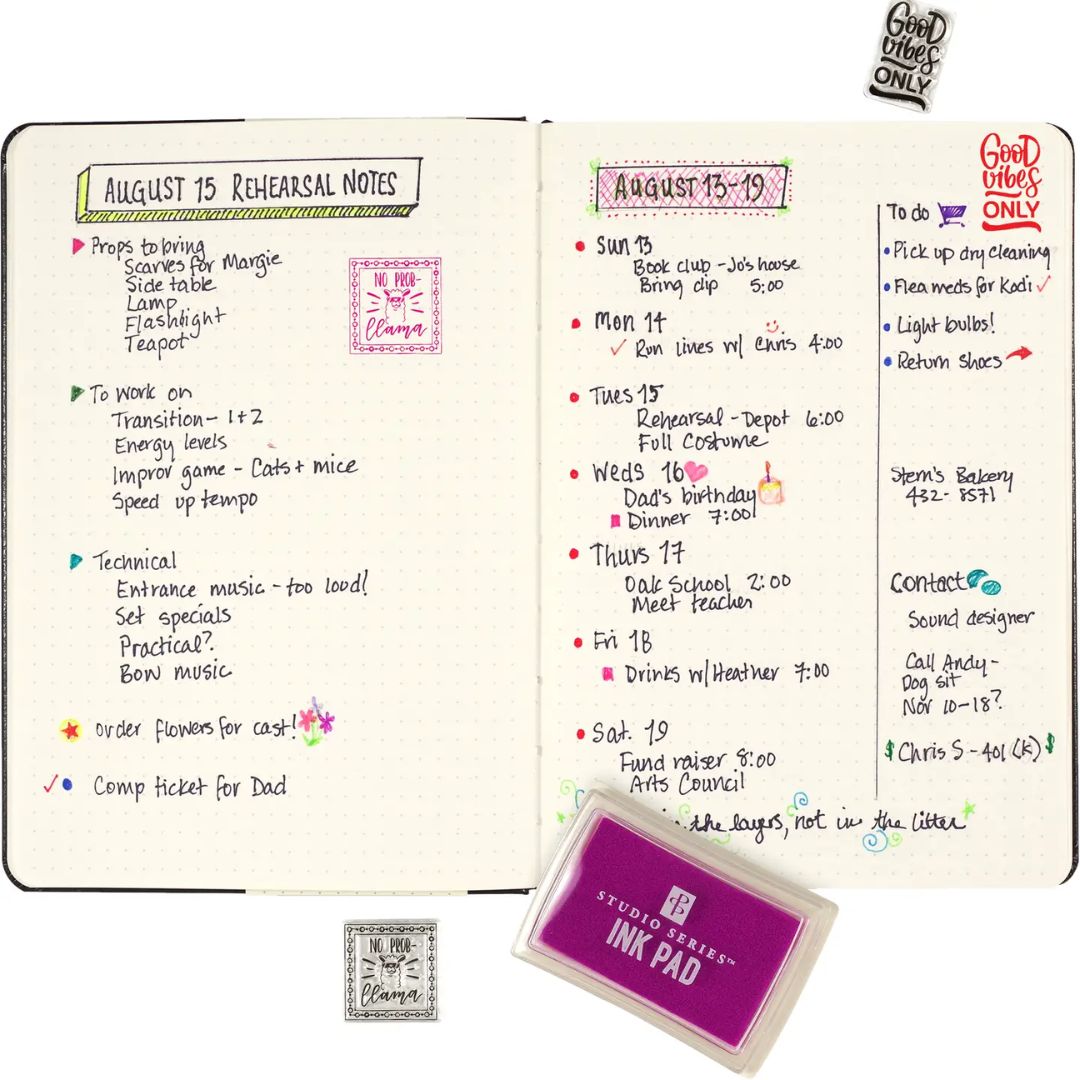 GOOD
vibes
ONLY
AUGUST 15 REHEARSAL NOTES
Props to bring
Scarves for Margie
Side table
Lamp
Flashlight
Teapot
NO PROB-
llama
To work on
Transition - 1+2
Energy levels
Improv game - Cats + mice
Speed up tempo
Technical
Entrance music - too loud!
Set specials
Practical?
Bow music
order flowers for cast!
Comp ticket for Dad
AUGUST 13-19
Sun 13
Book club - Jo's house
Bring dip 5:00
Mon 14
Run lines w/ Chris 4:00
Tues 15
Rehearsal - Depot 6:00
Full Costume
Weds 16
Dad's birthday
Dinner 7:00!
Thurs 17
Oak School 2:00
Meet teacher
Fri 18
Drinks w/ Heather 7:00
Sat. 19
Fund raiser 8:00
Arts Council
the layers, not in the litter
GOOD
vibes
ONLY
To do
Pick up dry cleaning
Flea meds for Kodi
Light bulbs!
Return shoes
Stern's Bakery
432-8571
Contact
Sound designer
Call Andy -
Dog sit
Nov 10-18?
$ Chris S - 401(k) $
NO PROB-
llama
STUDIO SERIES™
INK PAD